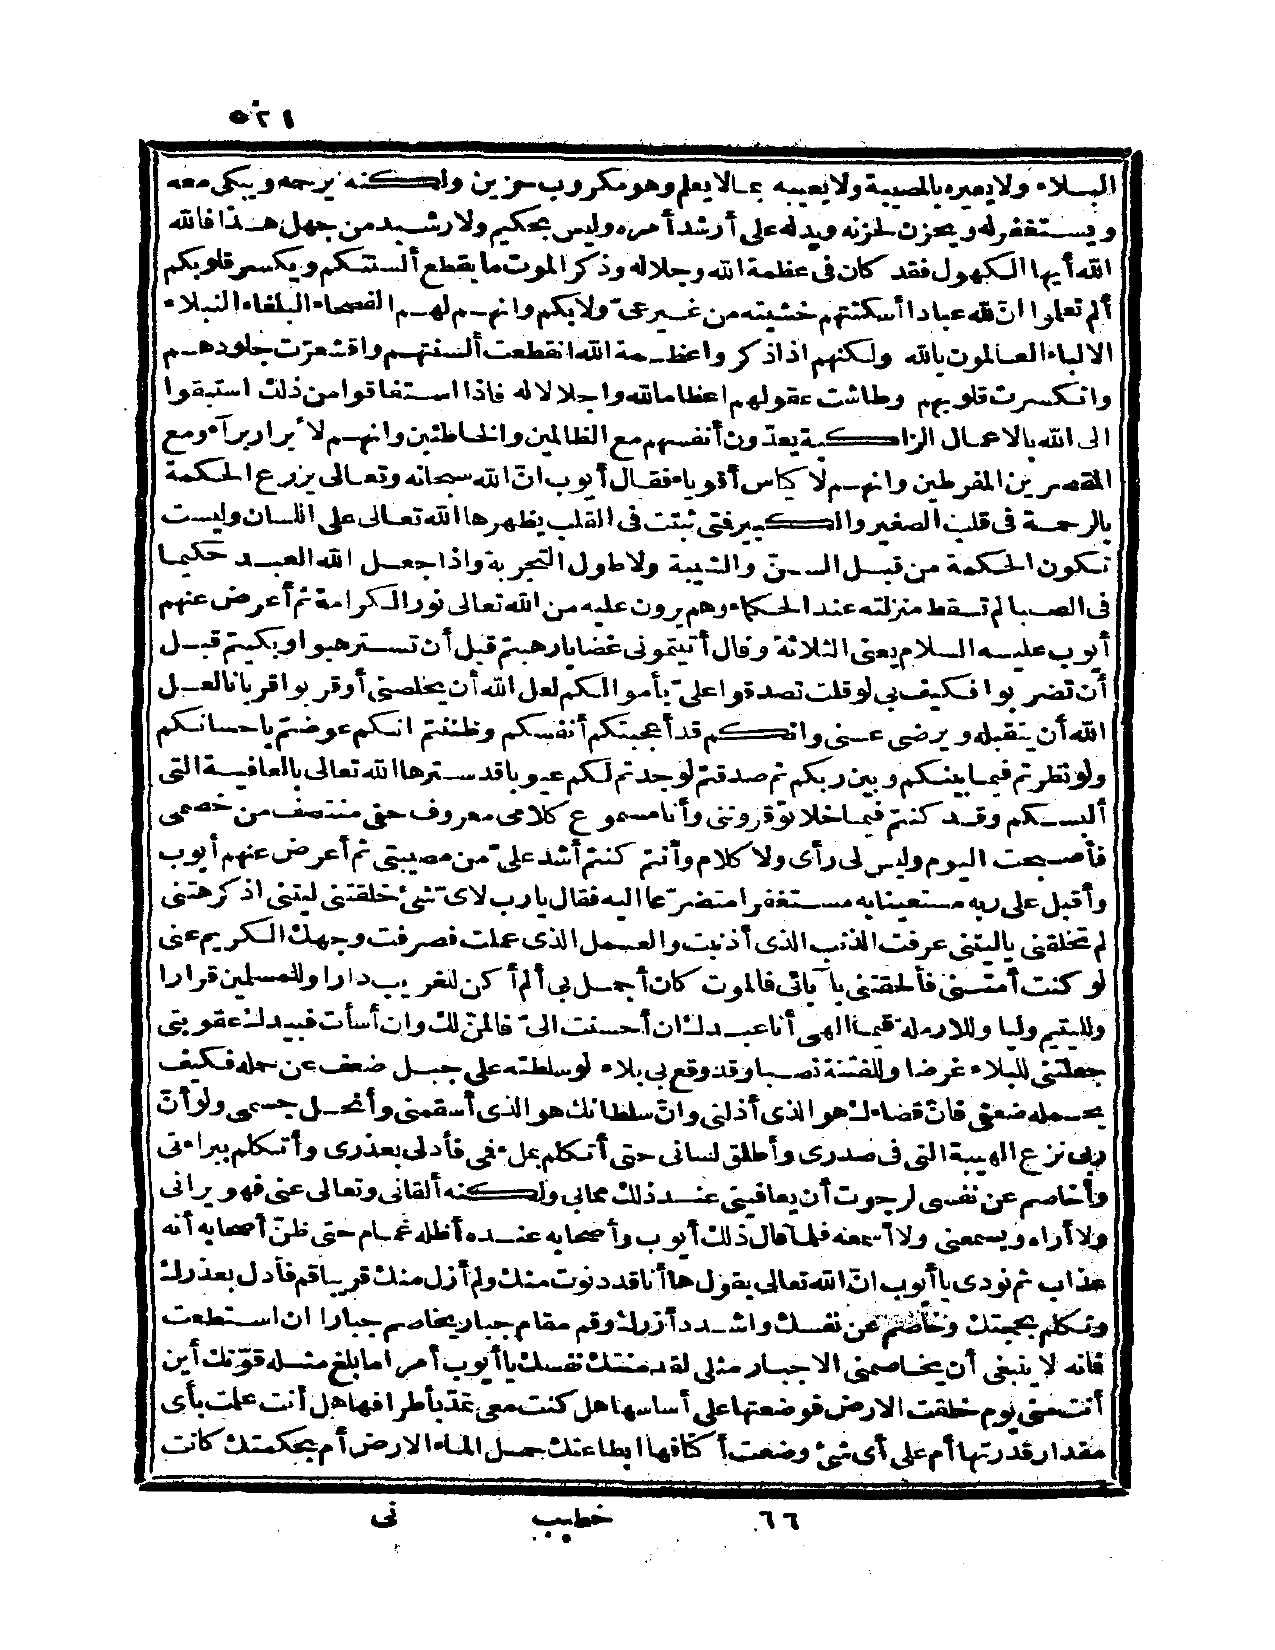 ٥٢١
البلاء ولا يعيره بالمصيبة ولا يعيبه بما لا يعلم وهو مكروب حزين ولكنه يرحمه ويبكى معه
ويستغفر له ويحزن لحزنه ويدله على أرشد أمره وليس بحكيم ولا رشيد من جهل هذا فالله
الله أيها الكهول فقد كان فى عظمة الله وجلاله وذكر الموت ما يقطع ألسنتكم ويكسر قلوبكم
ألم تعلموا انّ لله عبادا أسكتتهم خشيته من غير عىّ ولا بكم وانهم لهم الفصحاء البلغاء النبلاء
الالباء العالمون بالله ولكنهم اذا ذكروا عظمة الله انقطعت ألسنتهم واقشعرّت جلودهم
وانكسرت قلوبهم وطاشت عقولهم اعظاما لله واجلالا له فاذا استفاقوا من ذلك استبقوا
الى الله بالاعمال الزاكية يعدّون أنفسهم مع الظالمين والخاطئين وانهم لأبرار برآء ومع
المقصرين المفرطين وانهم لأكياس أقوياء فقال أيوب انّ الله سبحانه وتعالى يزرع الحكمة
بالرحمة فى قلب الصغير والكبير فتى ثبتت فى القلب يظهرها الله تعالى على اللسان وليست
تكون الحكمة من قبل السنّ والشيبة ولا طول التجربة واذا جعل الله العبد حكيما
فى الصبا لم تسقط منزلته عند الحكماء وهم يرون عليه من الله تعالى نور الكرامة ثم أعرض عنهم
أيوب عليه السلام يعنى الثلاثة وقال أتيتمونى غضابا رهبتم قبل أن تسترهبوا وبكيتم قبل
أن تضربوا فكيف بى لو قلت تصدقوا علىّ بأموالكم لعل الله أن يخلصنى أو قربوا قربانا لعل
الله أن يتقبله ويرضى عنى وانكم قد أعجبتكم أنفسكم وظننتم انكم عوضتم باحسانكم
ولو نظرتم فيما بينكم وبين ربكم ثم صدقتم لوجدتم لكم عيوبا قد سترها الله تعالى بالعافية التى
ألبسكم وقد كنتم فيما خلا توّقروننى وأنا مسموع كلامى معروف حقى منتصف من خصمى
فأصبحت اليوم وليس لى رأى ولا كلام وأنتم كنتم أشد علىّ من مصيبتى ثم أعرض عنهم أيوب
وأقبل على ربه مستعينا به مستغفرا متضرّعا اليه فقال يا رب لاىّ شئ خلقتنى ليتنى اذ كرهتنى
لم تخلقنى يا ليتنى عرفت الذنب الذى أذنبت والعمل الذى عملت فصرفت وجهك الكريم عنى
لو كنت أمتنى فألحقتنى بآبائى فالموت كان أجمل بى ألم أكن للغريب دارا وللمسلمين قرارا
ولليتيم وليا وللارملة قيما الهى أنا عبدك ان أحسنت الىّ فالمنّ لك وان أسأت فبيدك عقوبتى
جعلتنى للبلاء غرضا وللفتنة نصبا وقد وقع بى بلاء لو سلطته على جبل ضعف عن حمله فكيف
يحمله ضعفى فانّ قضاءك هو الذى أذلنى وانّ سلطانك هو الذى أسقمنى وأنحل جسمى ولو أنّ
ربى نزع الهيبة التى فى صدرى وأطلق لسانى حتى أتكلم بملء فى فأدلى بعذرى وأتكلم ببراءتى
وأخاصم عن نفسى لرجوت أن يعافينى عند ذلك مما بى ولكنه ألقانى وتعالى عنى فهو يرانى
ولا أراه ويسمعنى ولا أسمعه فلما قال ذلك أيوب وأصحابه عنده أظله غمام حتى ظنّ أصحابه أنه
عذاب ثم نودى يا أيوب انّ الله تعالى يقول ها أنا قد دنوت منك ولم أزل منك قريبا قم فأدل بعذرك
وتكلم بحجتك وخاصم عن نفسك واشدد أزرك وقم مقام جبار يخاصم جبارا ان استطعت
فانه لا ينبغى أن يخاصمنى الا جبار مثلى لقد منتك نفسك يا أيوب أمرا ما بلغ مثله قوّتك أين
أنت منى يوم خلقت الارض فوضعتها على أساسها هل كنت معى تمدّ بأطرافها هل أنت علمت بأى
مقدار قدرتها أم على أى شئ وضعت أكنافها ابطاعتك حمل الماء الارض أم بحكمتك كانت
٦٦ خطيب نى